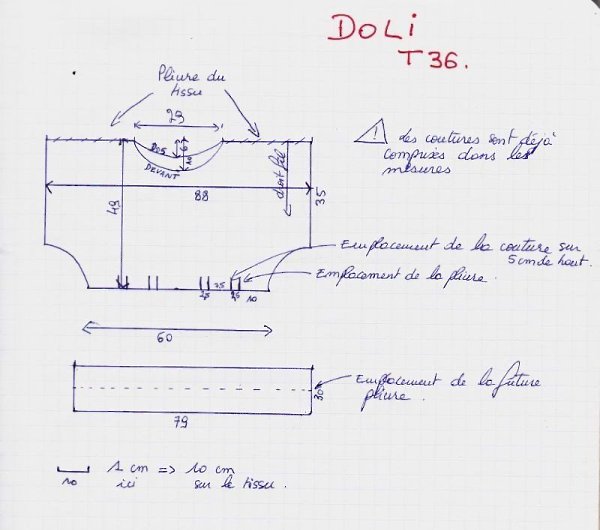 DOLI
T36.
Pliure du
tissu
29
⚠ Les coutures sont déjà
comprises dans les
mesures
DOS
6
10
DEVANT
droit fil
49
88
35
Emplacement de la couture sur
5cm de haut.
Emplacement de la pliure.
25
10
60
Emplacement de la future
pliure.
30
79
10
1 cm => 10 cm
ici sur le tissu.